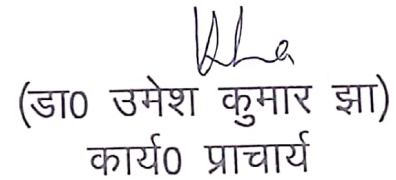 (डा0 उमेश कुमार झा)
कार्य0 प्राचार्य